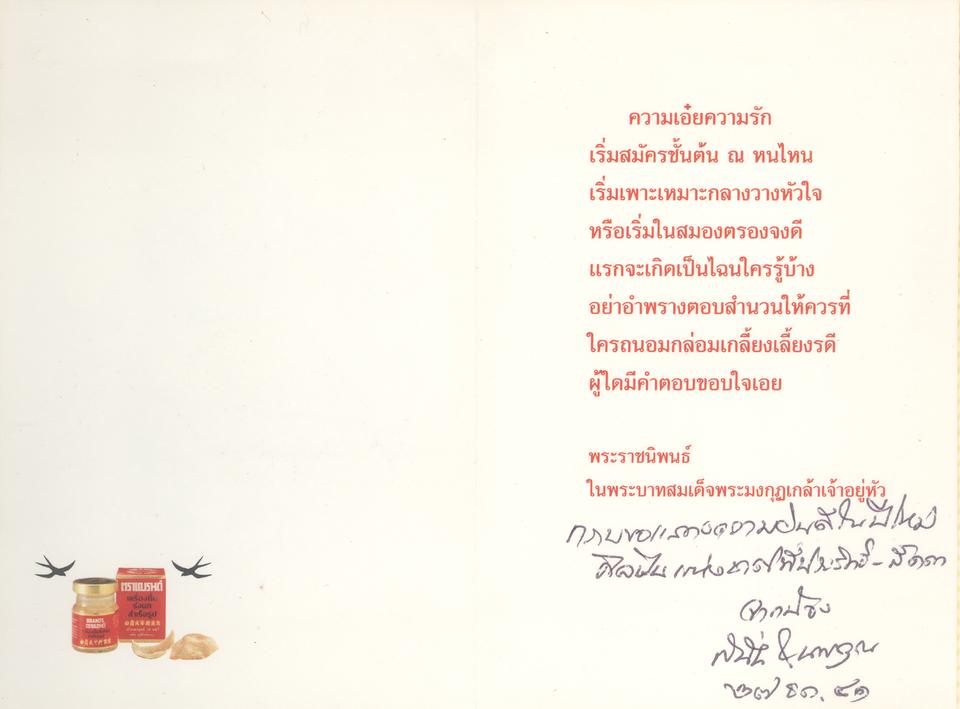 ความเอ๋ยความรัก
เริ่มสมัครชั้นต้น ณ หนไหน
เริ่มเพาะเหมาะกลางวางหัวใจ
หรือเริ่มในสมองตรองจงดี
แรกจะเกิดเป็นไฉนใครรู้บ้าง
อย่าอำพรางตอบสำนวนให้ควรที่
ใครถนอมกล่อมเกลี้ยงเลี้ยงรดี
ผู้ใดมีคำตอบขอบใจเอย
พระราชนิพนธ์
ในพระบาทสมเด็จพระมงกุฎเกล้าเจ้าอยู่หัว
กราบขอแสดงความยินดีในปีใหม่
ศิลปินแห่งชาติ
จาก
๒๗ ธค. ๔๑
ตราแบรนด์
เครื่องดื่ม
รังนก
สำเร็จรูป
BRAND'S